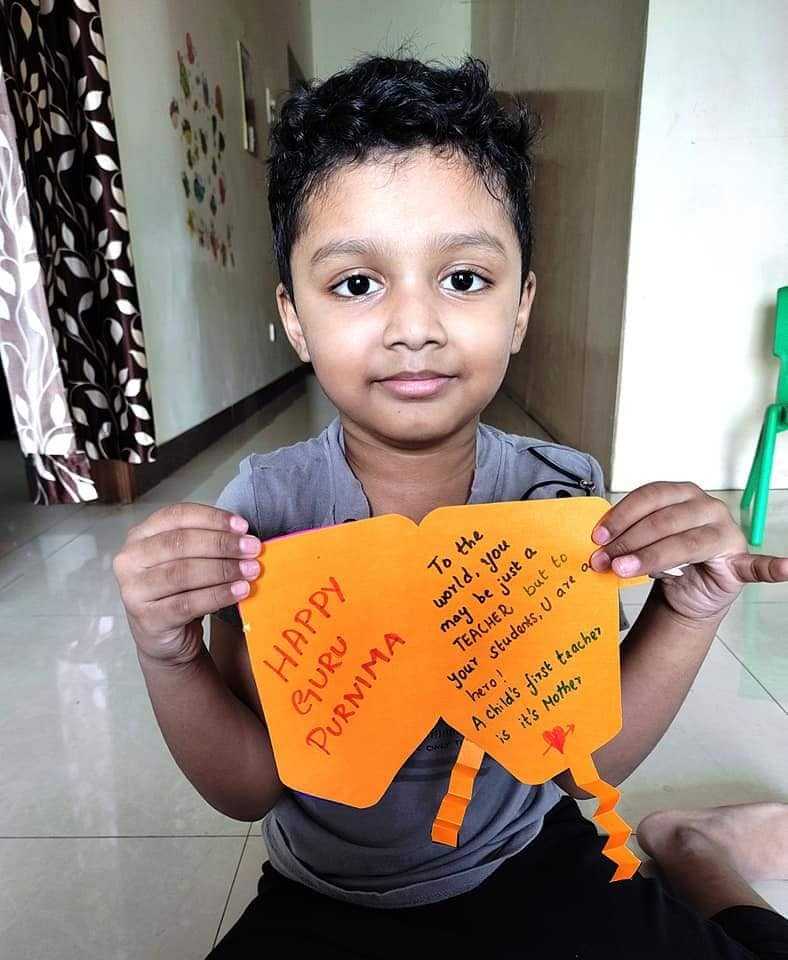 HAPPY
GURU
PURNIMA
To the
world, you
may be just a
TEACHER, but to
your students, U are a
hero!
A child's first teacher
is it's Mother